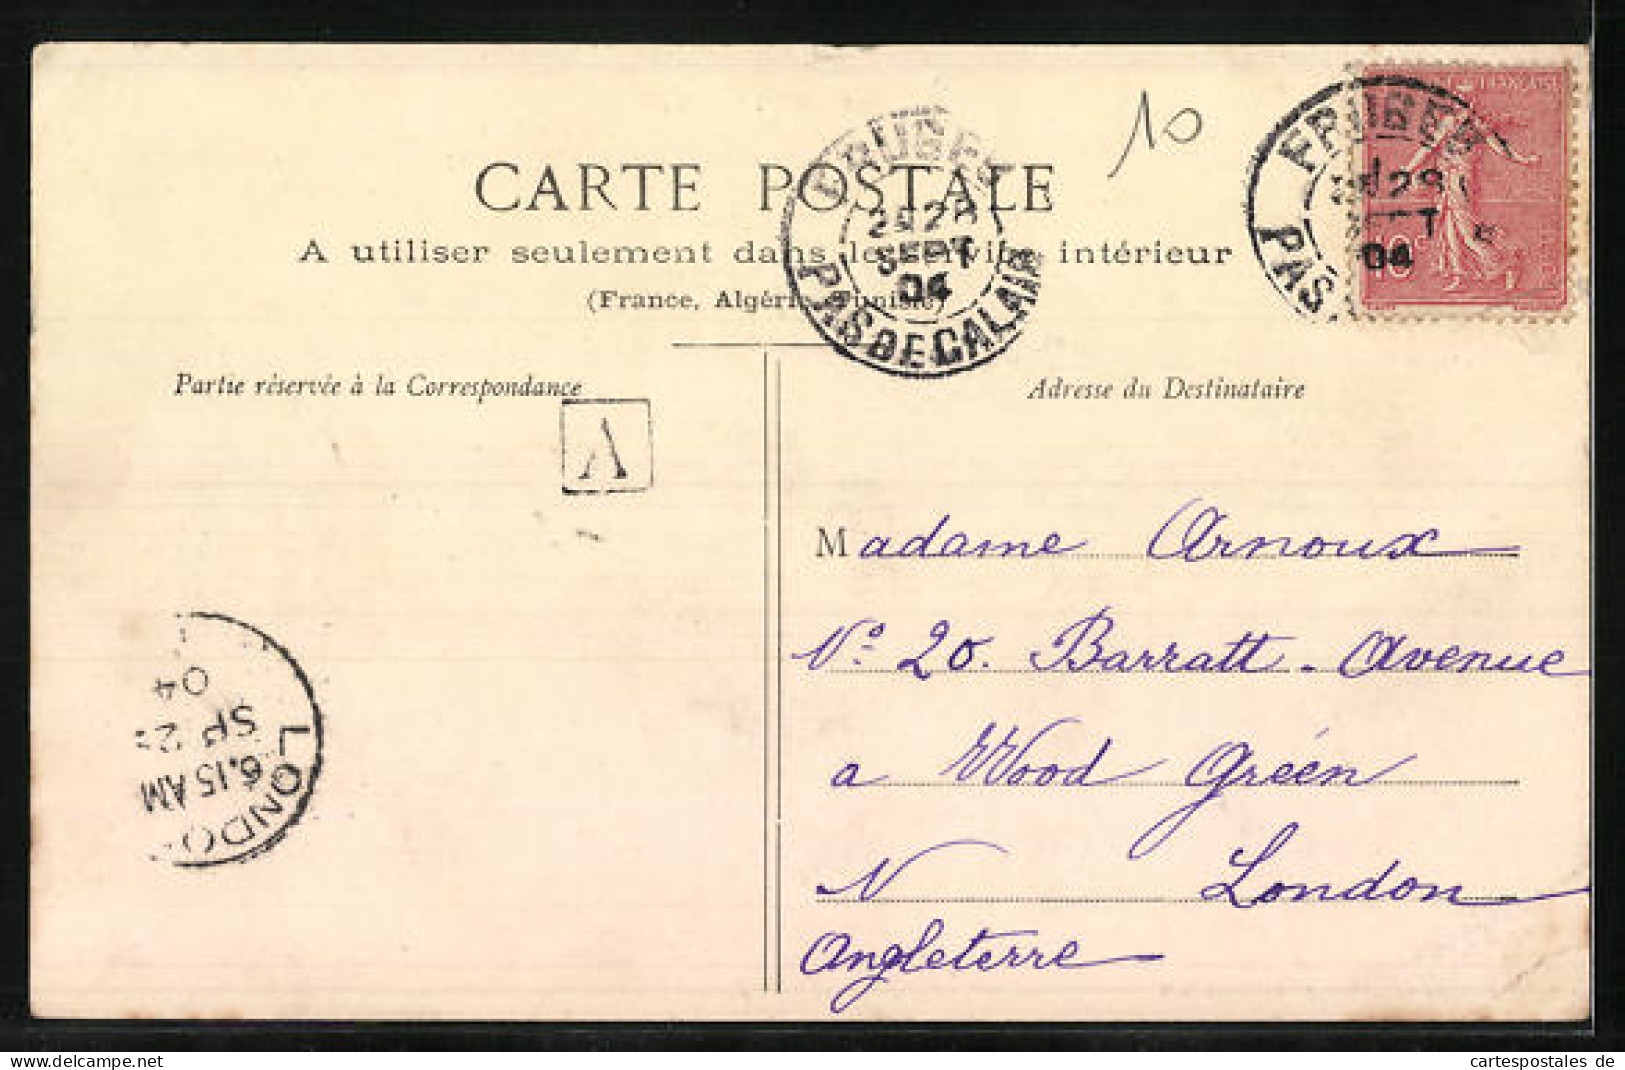 10
CARTE POSTALE
A utiliser seulement dans le service intérieur
(France, Algérie, Tunisie)
FRUGES
SEPT
04
PAS DE CALAIS
FRUGES
04
PAS
10
Partie réservée à la Correspondance
Adresse du Destinataire
A
Madame Arnoux
Nº 20. Barratt - Avenue
a Wood Gréen
N London
Angleterre
LONDO
6.15 AM
SP 2
04
cartespostales de